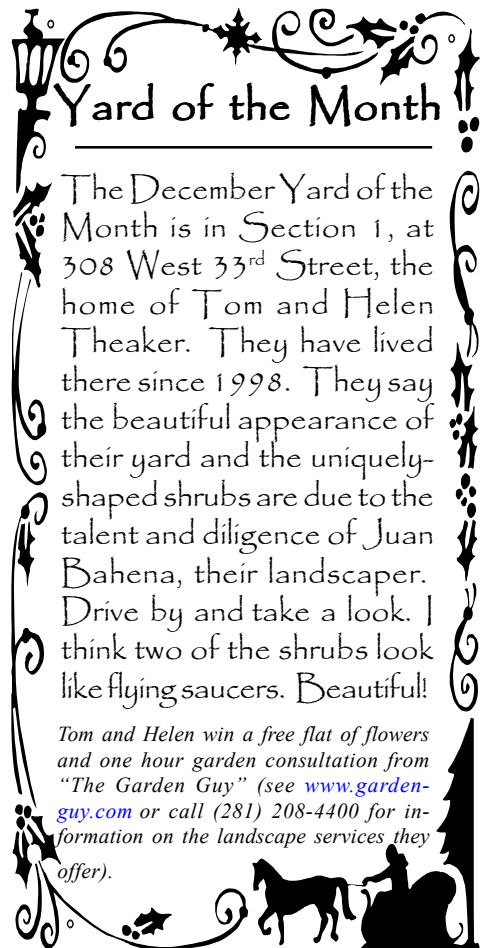 Yard of the Month
The December Yard of the
Month is in Section 1, at
308 West 33rd Street, the
home of Tom and Helen
Theaker. They have lived
there since 1998. They say
the beautiful appearance of
their yard and the uniquely-
shaped shrubs are due to the
talent and diligence of Juan
Bahena, their landscaper.
Drive by and take a look. I
think two of the shrubs look
like flying saucers. Beautiful!
Tom and Helen win a free flat of flowers
and one hour garden consultation from
“The Garden Guy” (see www.garden-
guy.com or call (281) 208-4400 for in-
formation on the landscape services they
offer).